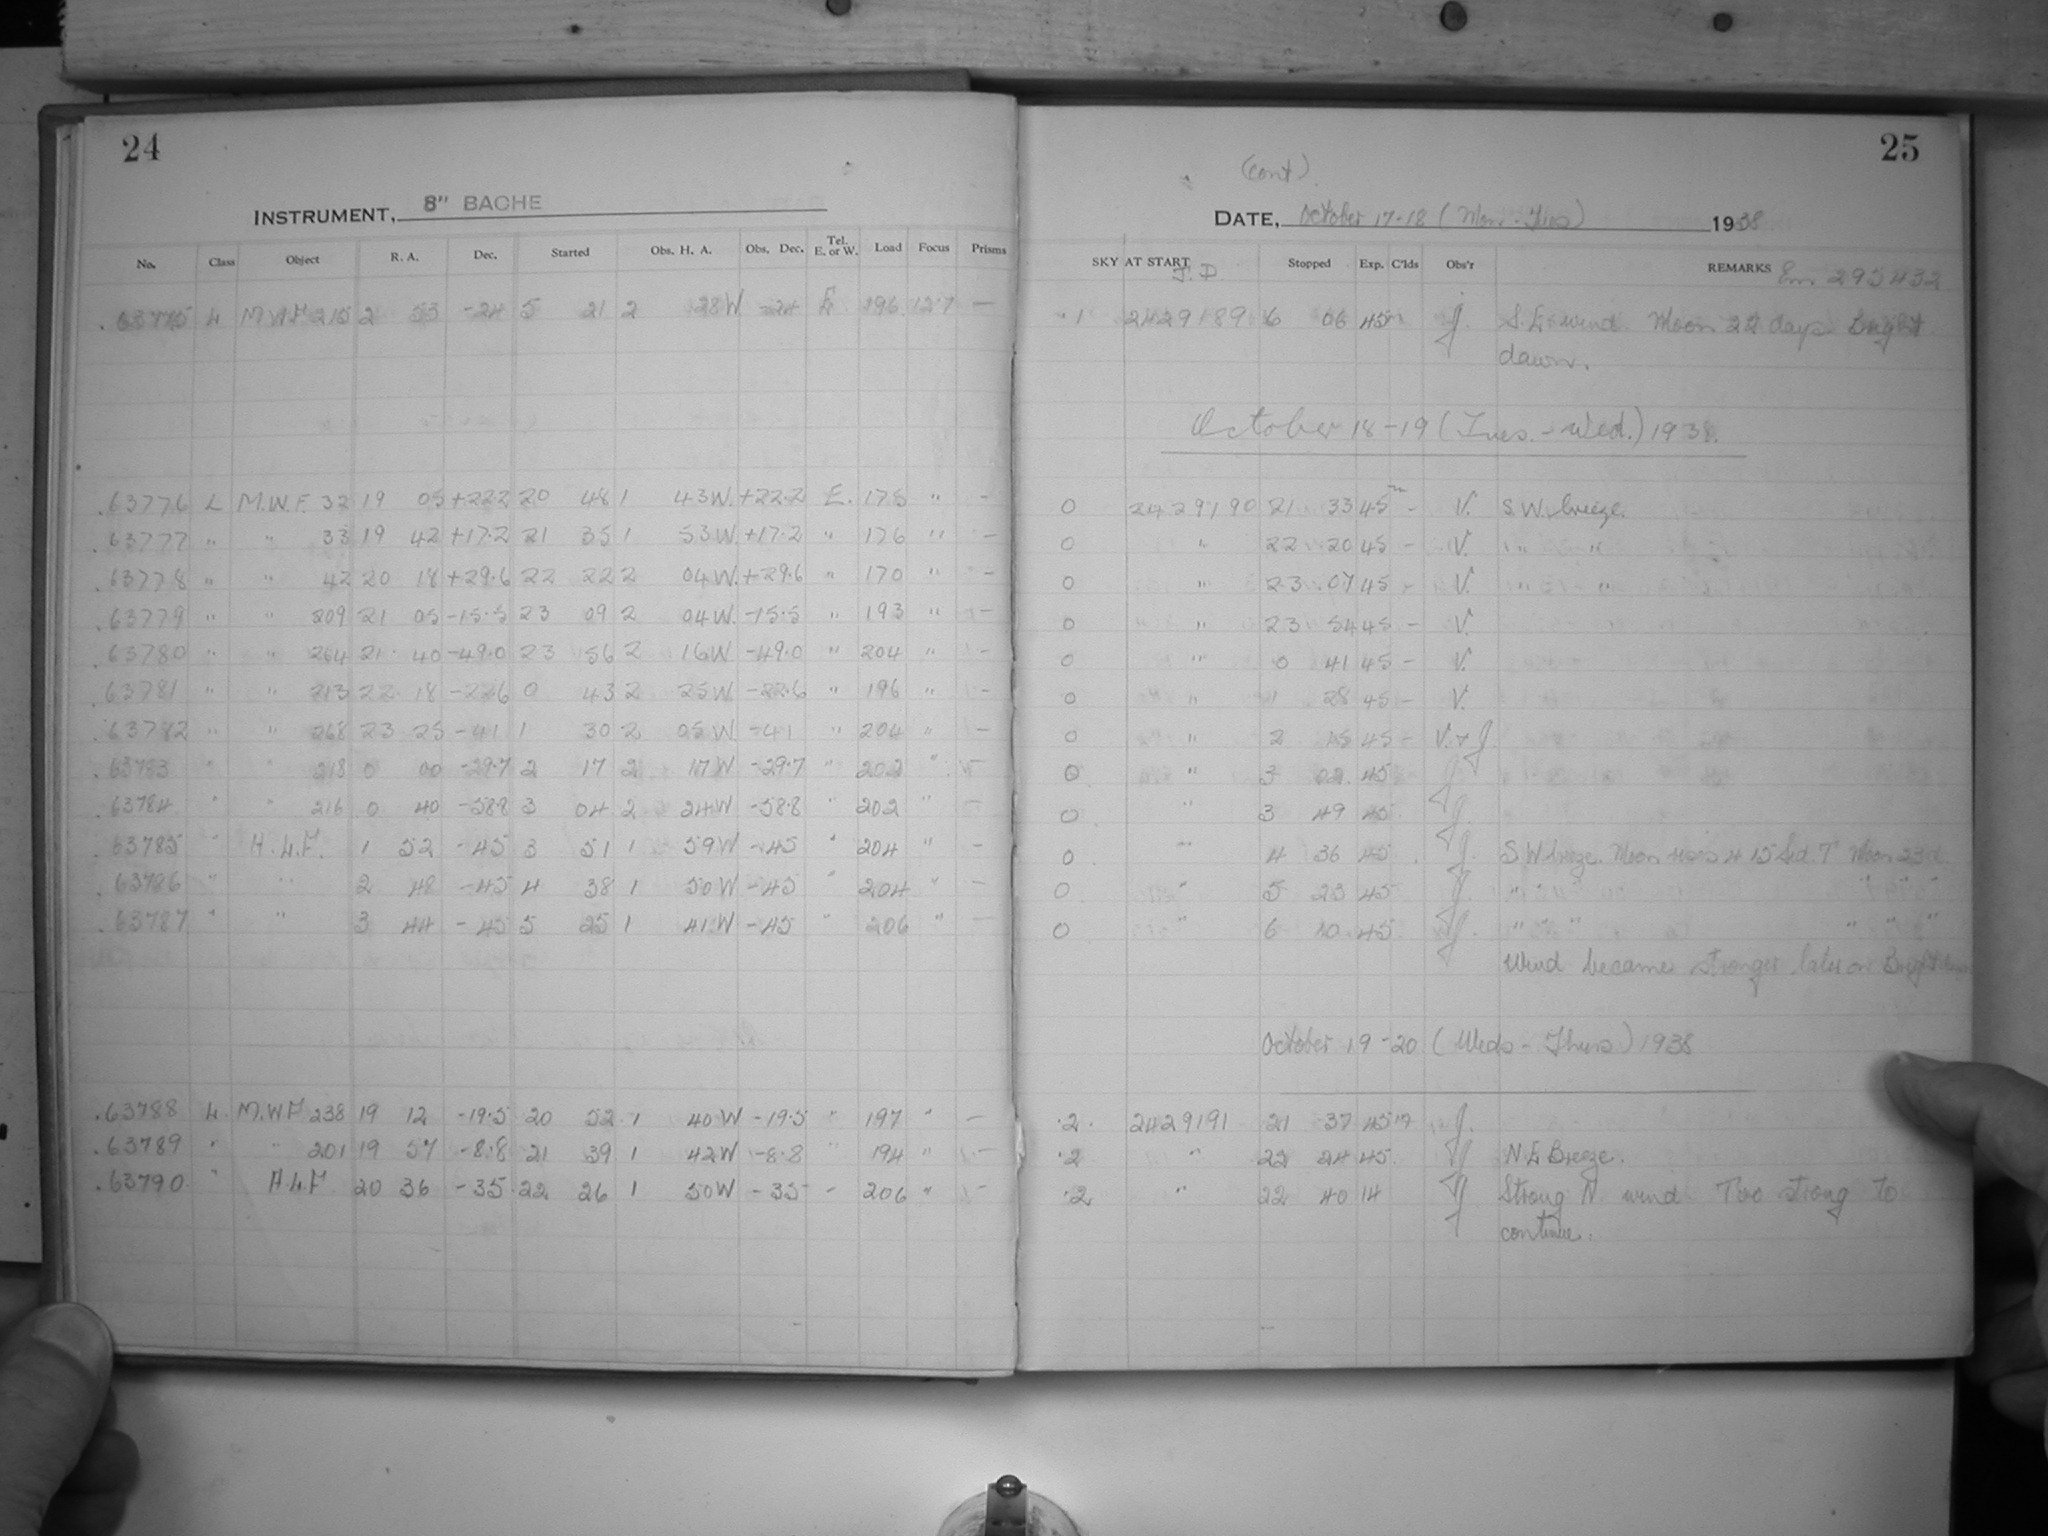 24
INSTRUMENT, 8" BACHE
No. Class Object R. A. Dec. Started Obs. H. A. Obs. Dec. Tel. E. or W. Load Focus Prisms
.63775 L M.W.F 215 2 53 -24 5 21 2 28W -24 E. 196 12.7 —
.63776 L M.W.F. 32 19 05 +22.2 20 48 1 43W. +22.2 E. 175 " -
.63777 " " 33 19 42 +17.2 21 35 1 53W +17.2 " 176 " -
.63778 " " 42 20 18 +29.6 22 22 2 04W. +29.6 " 170 " -
.63779 " " 209 21 05 -15.5 23 09 2 04W. -15.5 " 193 " -
.63780 " " 264 21 40 -49.0 23 56 2 16W -49.0 " 204 " -
.63781 " " 213 22 18 -22.6 0 43 2 25W -22.6 " 196 " -
.63782 " " 268 23 25 -41 1 30 2 05W -41 " 204 " -
.63783 " " 218 0 00 -29.7 2 17 2 17W -29.7 " 202 " -
.63784 " " 216 0 40 -58.8 3 04 2 24W -58.8 " 202 " -
.63785 " H.L.F. 1 52 -45 3 51 1 59W -45 " 204 " -
.63786 " " 2 48 -45 4 38 1 50W -45 " 204 " -
.63787 " " 3 44 -45 5 25 1 41W -45 " 206 " -
.63788 L. M.W.F 238 19 12 -19.5 20 52 1 40W -19.5 " 197 " -
.63789 " " 201 19 57 -8.8 21 39 1 42W -8.8 " 194 " -
.63790 " H.L.F 20 36 -35 22 26 1 50W -35 - 206 " -
25
(cont).
DATE, October 17-18 (Mon - Tues) 1938
SKY AT START J.D Stopped Exp. C'lds Obs'r REMARKS Em 295432
.1 2429189 6 06 45m J. S.E wind Moon 24 days Bright
dawn.
October 18-19 (Tues. - Wed.) 1938.
0 2429190 21 33 45m - V. S.W. breeze.
0 " 22 20 45 - V. " "
0 " 23 07 45 - V. " "
0 " 23 54 45 - V.
0 " 0 41 45 - V.
0 " 1 28 45 - V.
0 " 2 15 45 - V. & J.
0 " 3 02 45 J.
0 " 3 49 45 J.
0 " 4 36 45 J. S W breeze. Moon 4 15 Sid. T Moon 23d
0 " 5 23 45 J. " " " " "
0 " 6 10 45 J. " " " " "
Wind became stronger later on Bright
October 19-20 (Weds - Thurs) 1938
.2 2429191 21 37 45m J.
.2 " 22 24 45 J N E Breeze.
.2 " 22 40 14 J Strong N. wind Too strong to
continue.